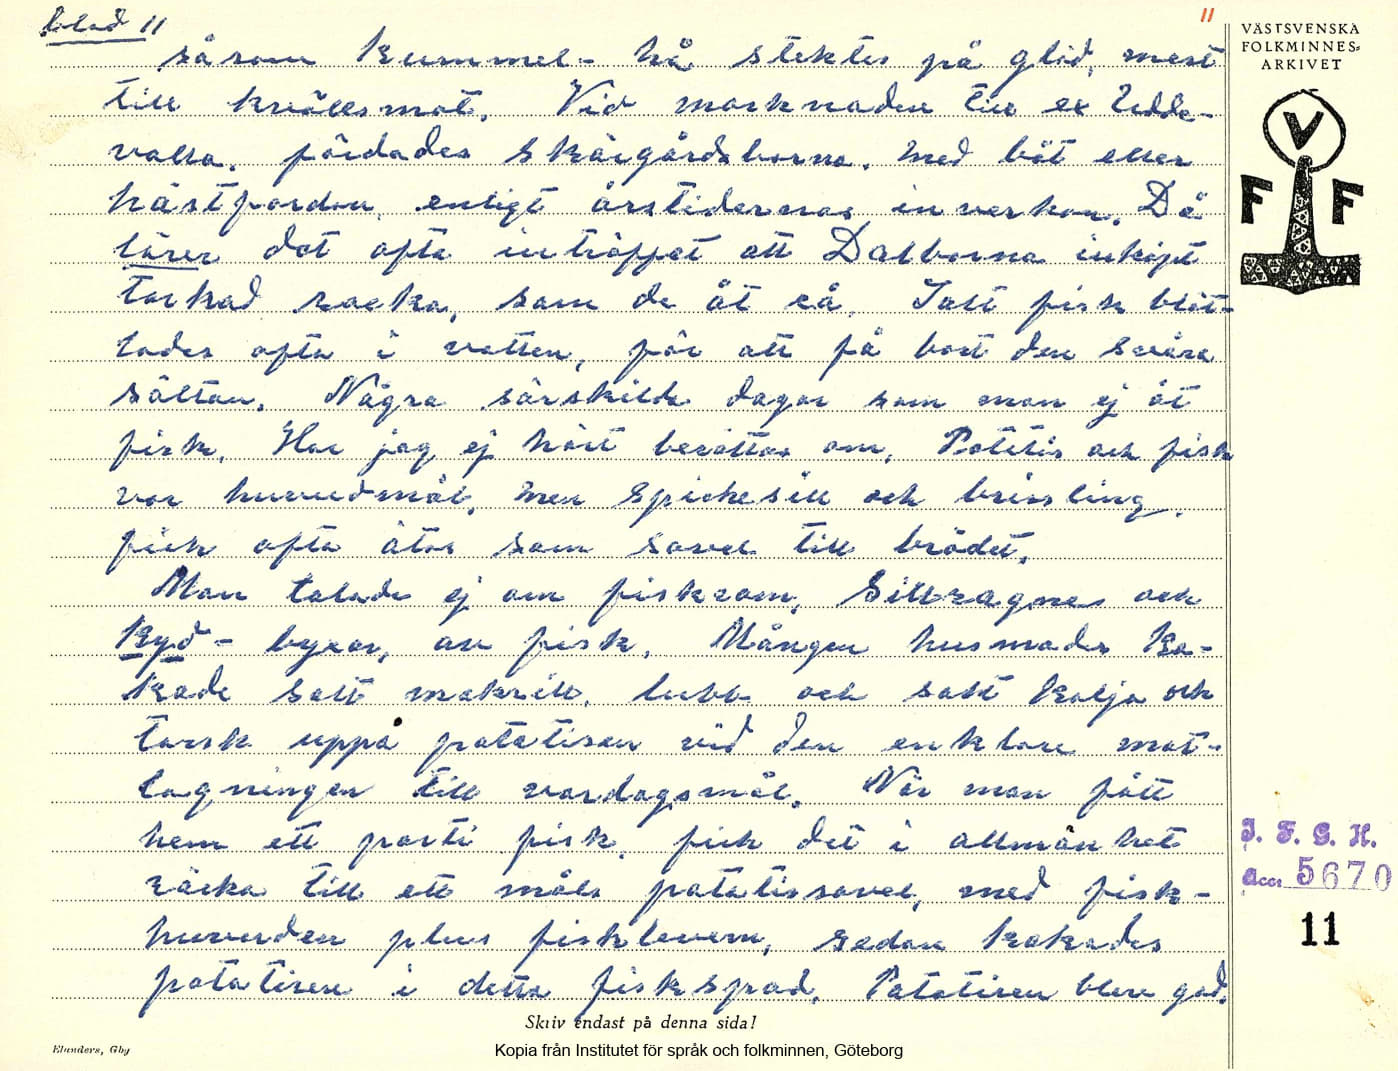 blad 11
11
såsom Kummel- hå stektes på glöd, mest
till kvällsmat. Vid marknaden till ex Udde-
valla, färdades skärgårdsborna, med båt eller
hästfordon, enligt årstidernas inverkan. Då
lärer det ofta inträffat att Dalborna inköpt
torkad racka, som de åt rå. Salt fisk blöt-
lades ofta i vatten, för att få bort den svåra
sältan. Några särskilda dagar som man ej åt
fisk. Har jag ej hört berättas om. Potatis och fisk
var huvudmål, men spickesill och brissling,
fick ofta ätas som sovel till brödet.
Man talade ej om fiskrom, Sillragnes och
Kyd- byxor, av fisk. Mången husmoder ko-
kade salt makrill, lubb och salt kolja och
torsk uppå potatisen vid den enklare mat-
lagningen till vardagsmål. När man fått
hem ett parti fisk, fick det i allmänhet
räcka till ett måls potatissovel, med fisk-
huvuden plus fisklevern, sedan kokades
potatisen i detta fiskspad. Potatisen blev god.
VÄSTSVENSKA
FOLKMINNES-
ARKIVET
V
F F
I. F. G. H.
Acc. 5670
11
Skriv endast på denna sida!
Elanders, Gbg
Kopia från Institutet för språk och folkminnen, Göteborg